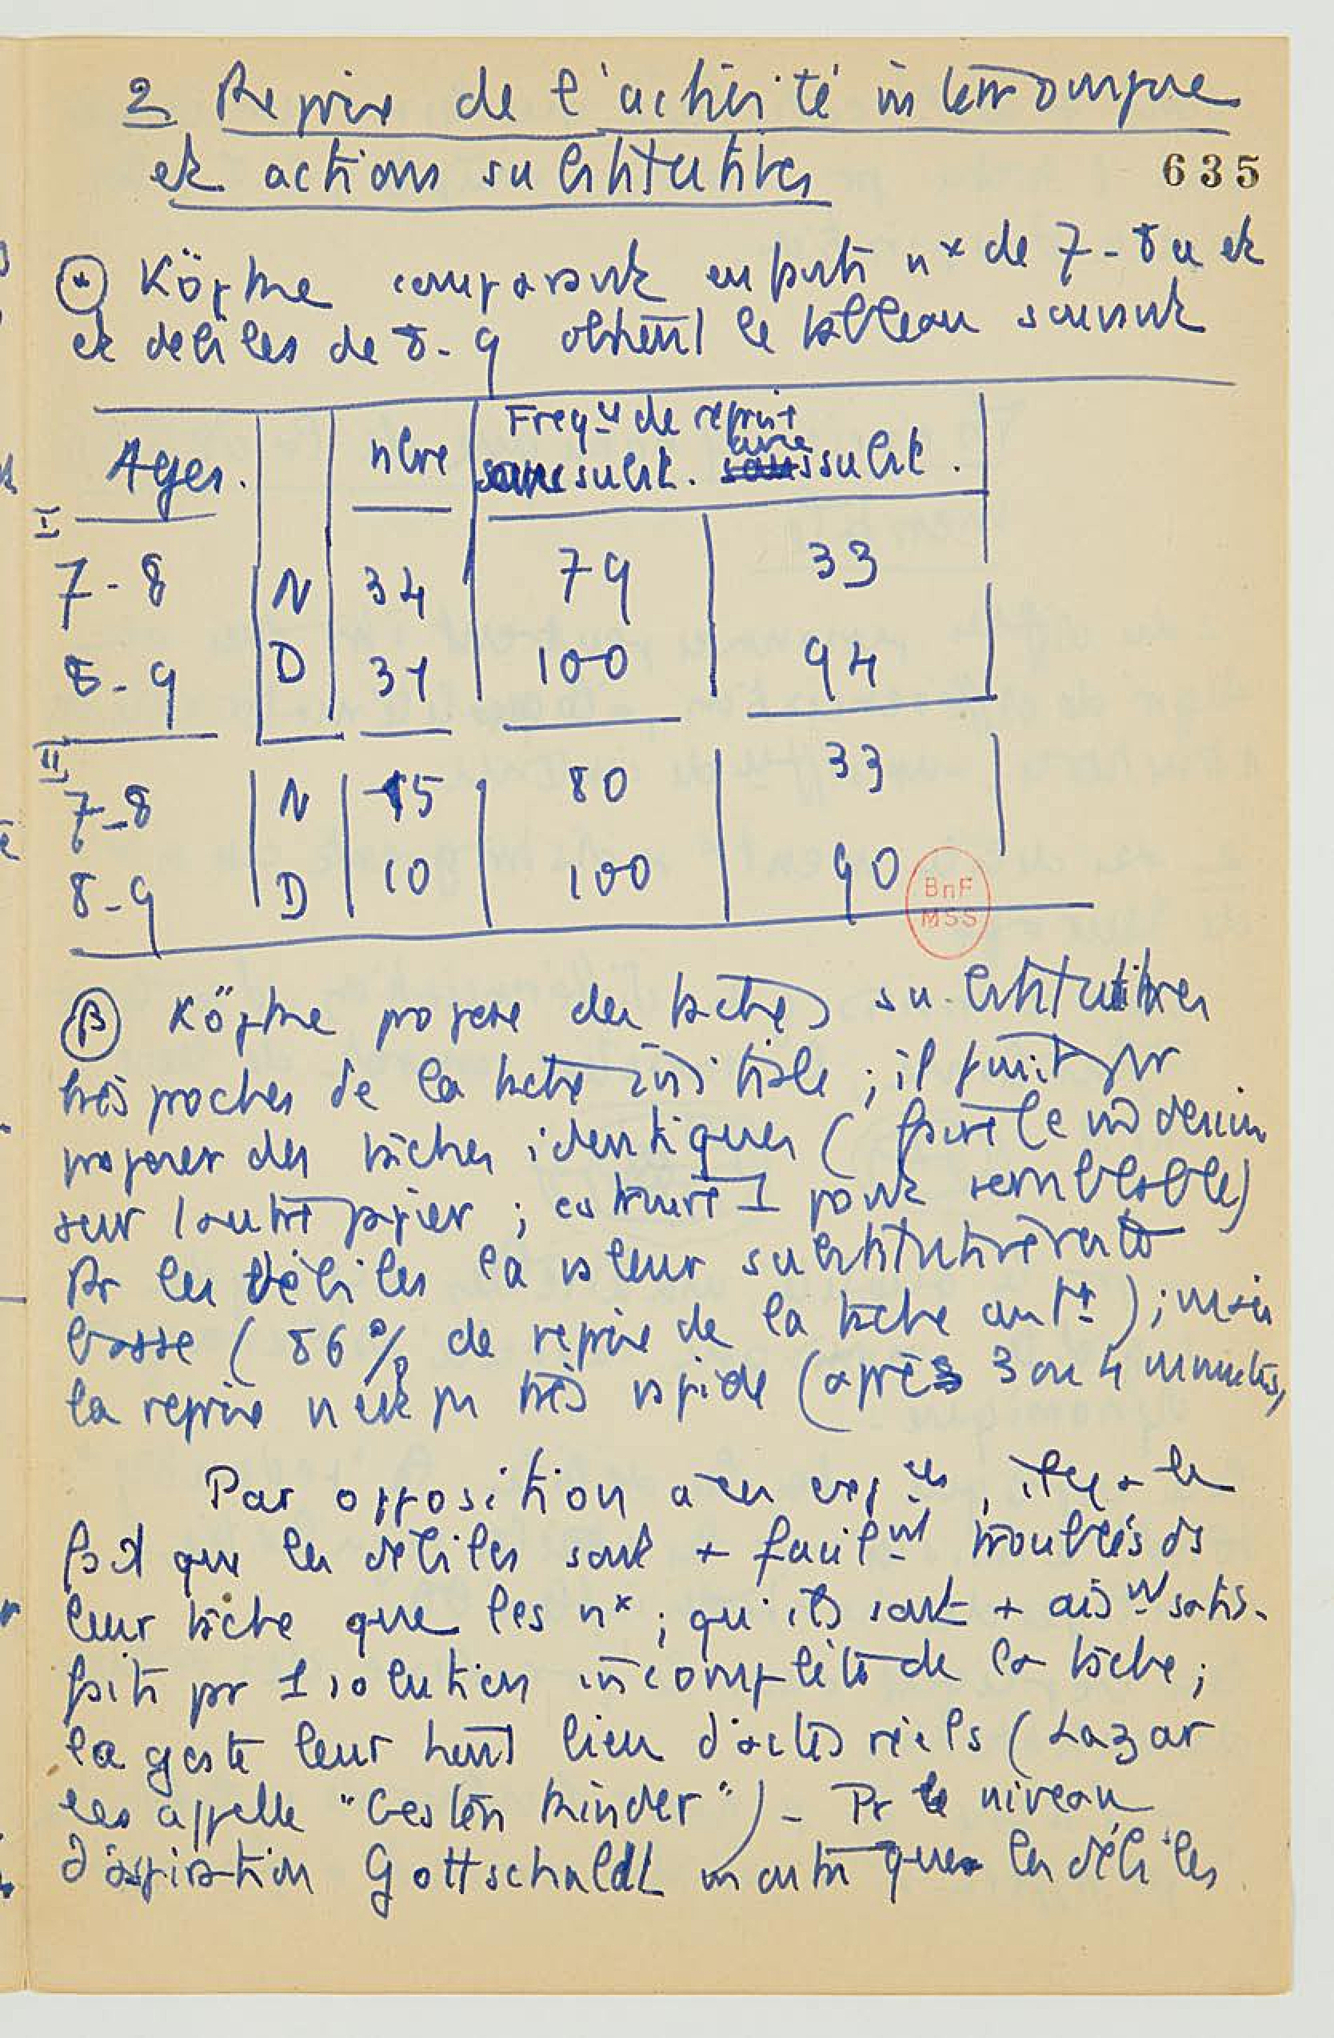 2 Reprise de l'activité interrompue
et actions substitutives
635
(α) Köpke comparant enfants nx de 7-8 a et
et débiles de 8-9 obtient le tableau suivant
Ages. nbre Freqce de reprise
sans subst. avec subst.
I
7-8 N 34 79 33
8-9 D 31 100 94
II
7-8 N 15 80 33
8-9 D 10 100 90
BnF
MSS
(β) Köpke propose des taches substitutives
très proches de la tache initiale ; il finit par
proposer des tâches identiques ( faire le m dessin
sur 1 autre papier ; construire 1 pont semblable)
Pr les débiles la valeur substitutive reste
basse ( 86 % de reprise de la tache antre ) ; mais
la reprise n'est pas très rapide (après 3 ou 4 minutes,
Par opposition à ces expces, il y a le
fait que les débiles sont + facilnt troublés ds
leur tâche que les nx ; qu'ils sont + aisnt satis-
faits par 1 solution incomplète de la tâche ;
la geste leur tient lieu d'actes réels ( Lazar
les appelle "Gesten Kinder" ) - Pr le niveau
d'aspiration Gottschaldt montre que les débiles